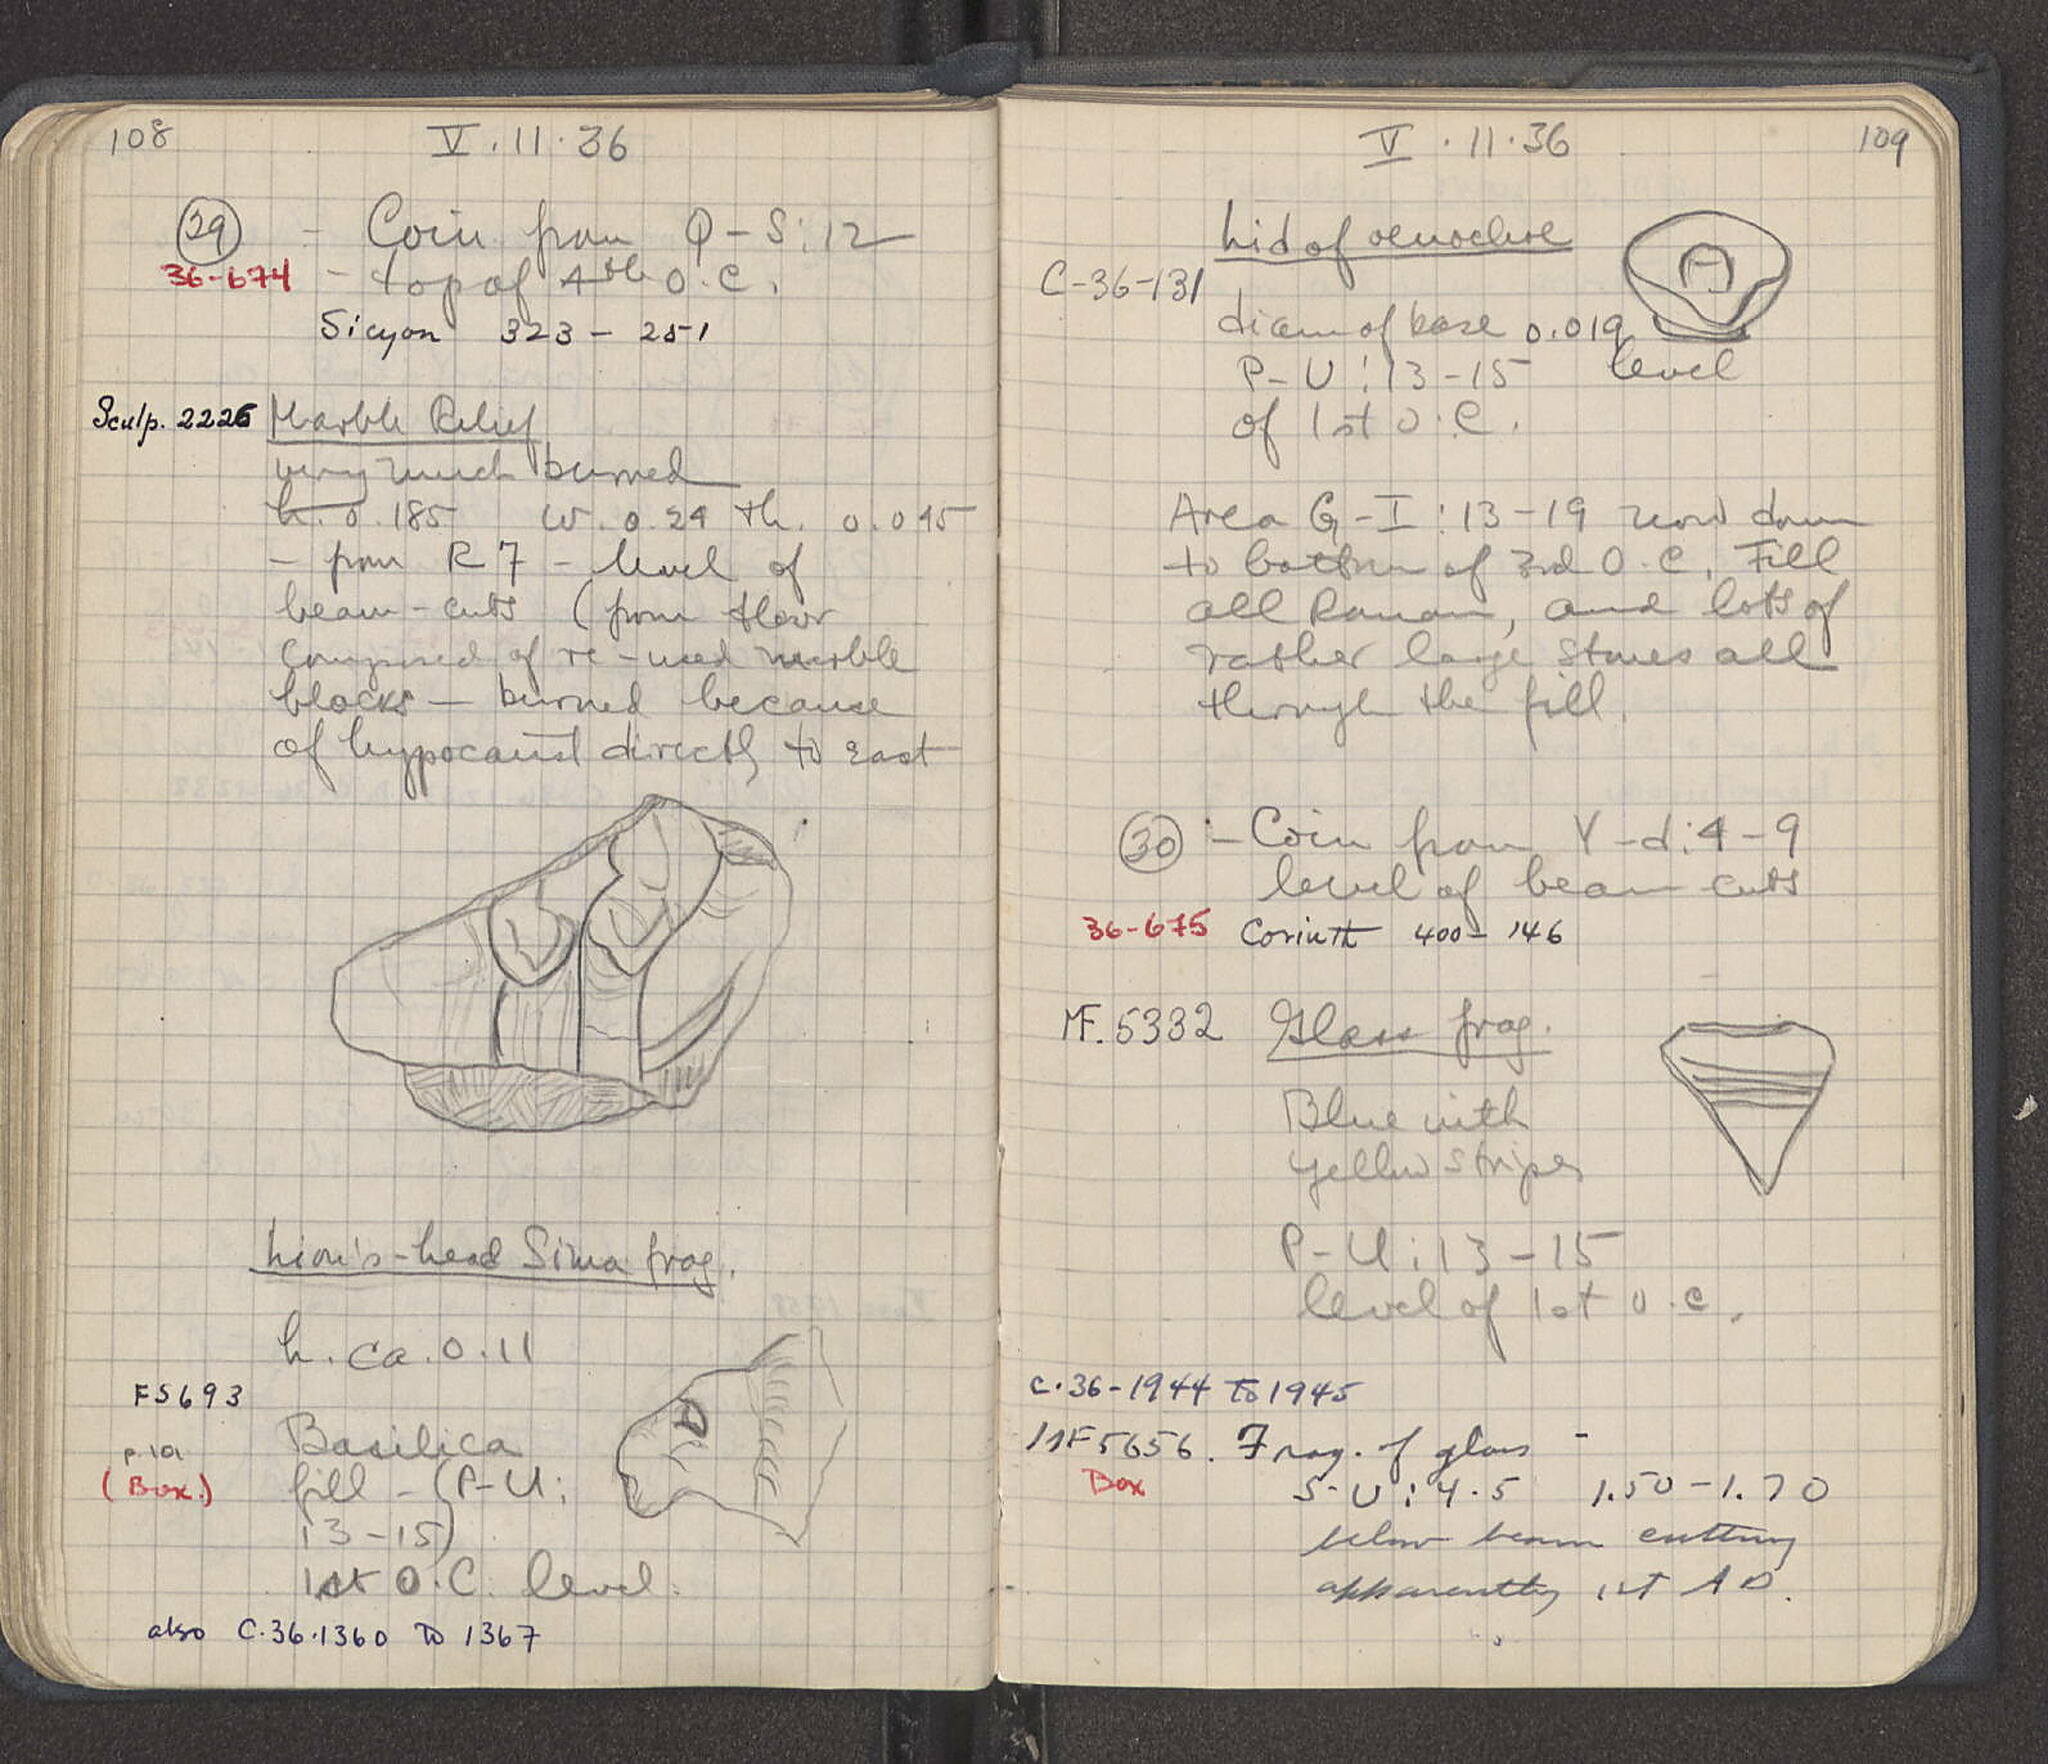 108
V . 11 . 36
29 - Coin from Q-S:12
36-674 - top of 4th O.C.
Sicyon 323 - 251
Sculp. 2226 Marble Relief
very much burned
h. 0.185 W. 0.24 th. 0.045
- from R 7 - level of
beam-cuts (from floor
composed of re-used marble
blocks - burned because
of hypocaust directly to east
Lion's-head Sima frag.
h. ca. 0.11
FS693
p. 101
(Box.)
Basilica
fill - (P-U:
13-15)
1st O.C. level.
also C.36.1360 to 1367
V . 11 . 36
109
Lid of oenochoe
C-36-131
diam of base 0.019
P-U:13-15 level
of 1st O.C.
Area G-I:13-19 now down
to bottom of 3rd O.C. Fill
all Roman, and lots of
rather large stones all
through the fill.
30 - Coin from Y-d:4-9
level of beam cuts
36-675 Corinth 400-146
MF.5332 Glass frag.
Blue with
yellow stripes
P-U:13-15
level of 1st O.C.
C.36-1944 to 1945
MF5656. Frag. of glass -
Box
S-U:4.5 1.50-1.70
below beam cutting
apparently 1st AD.